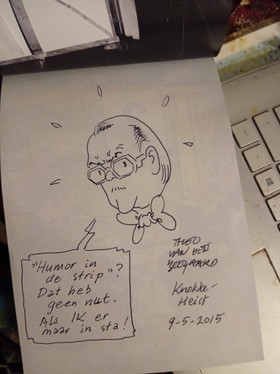 "Humor in
de strip"?
Dat heb
geen nut.
Als IK er
maar in sta!
THEO
VAN DEN
BOOGAARD
Knokke-
Heist
9-5-2015